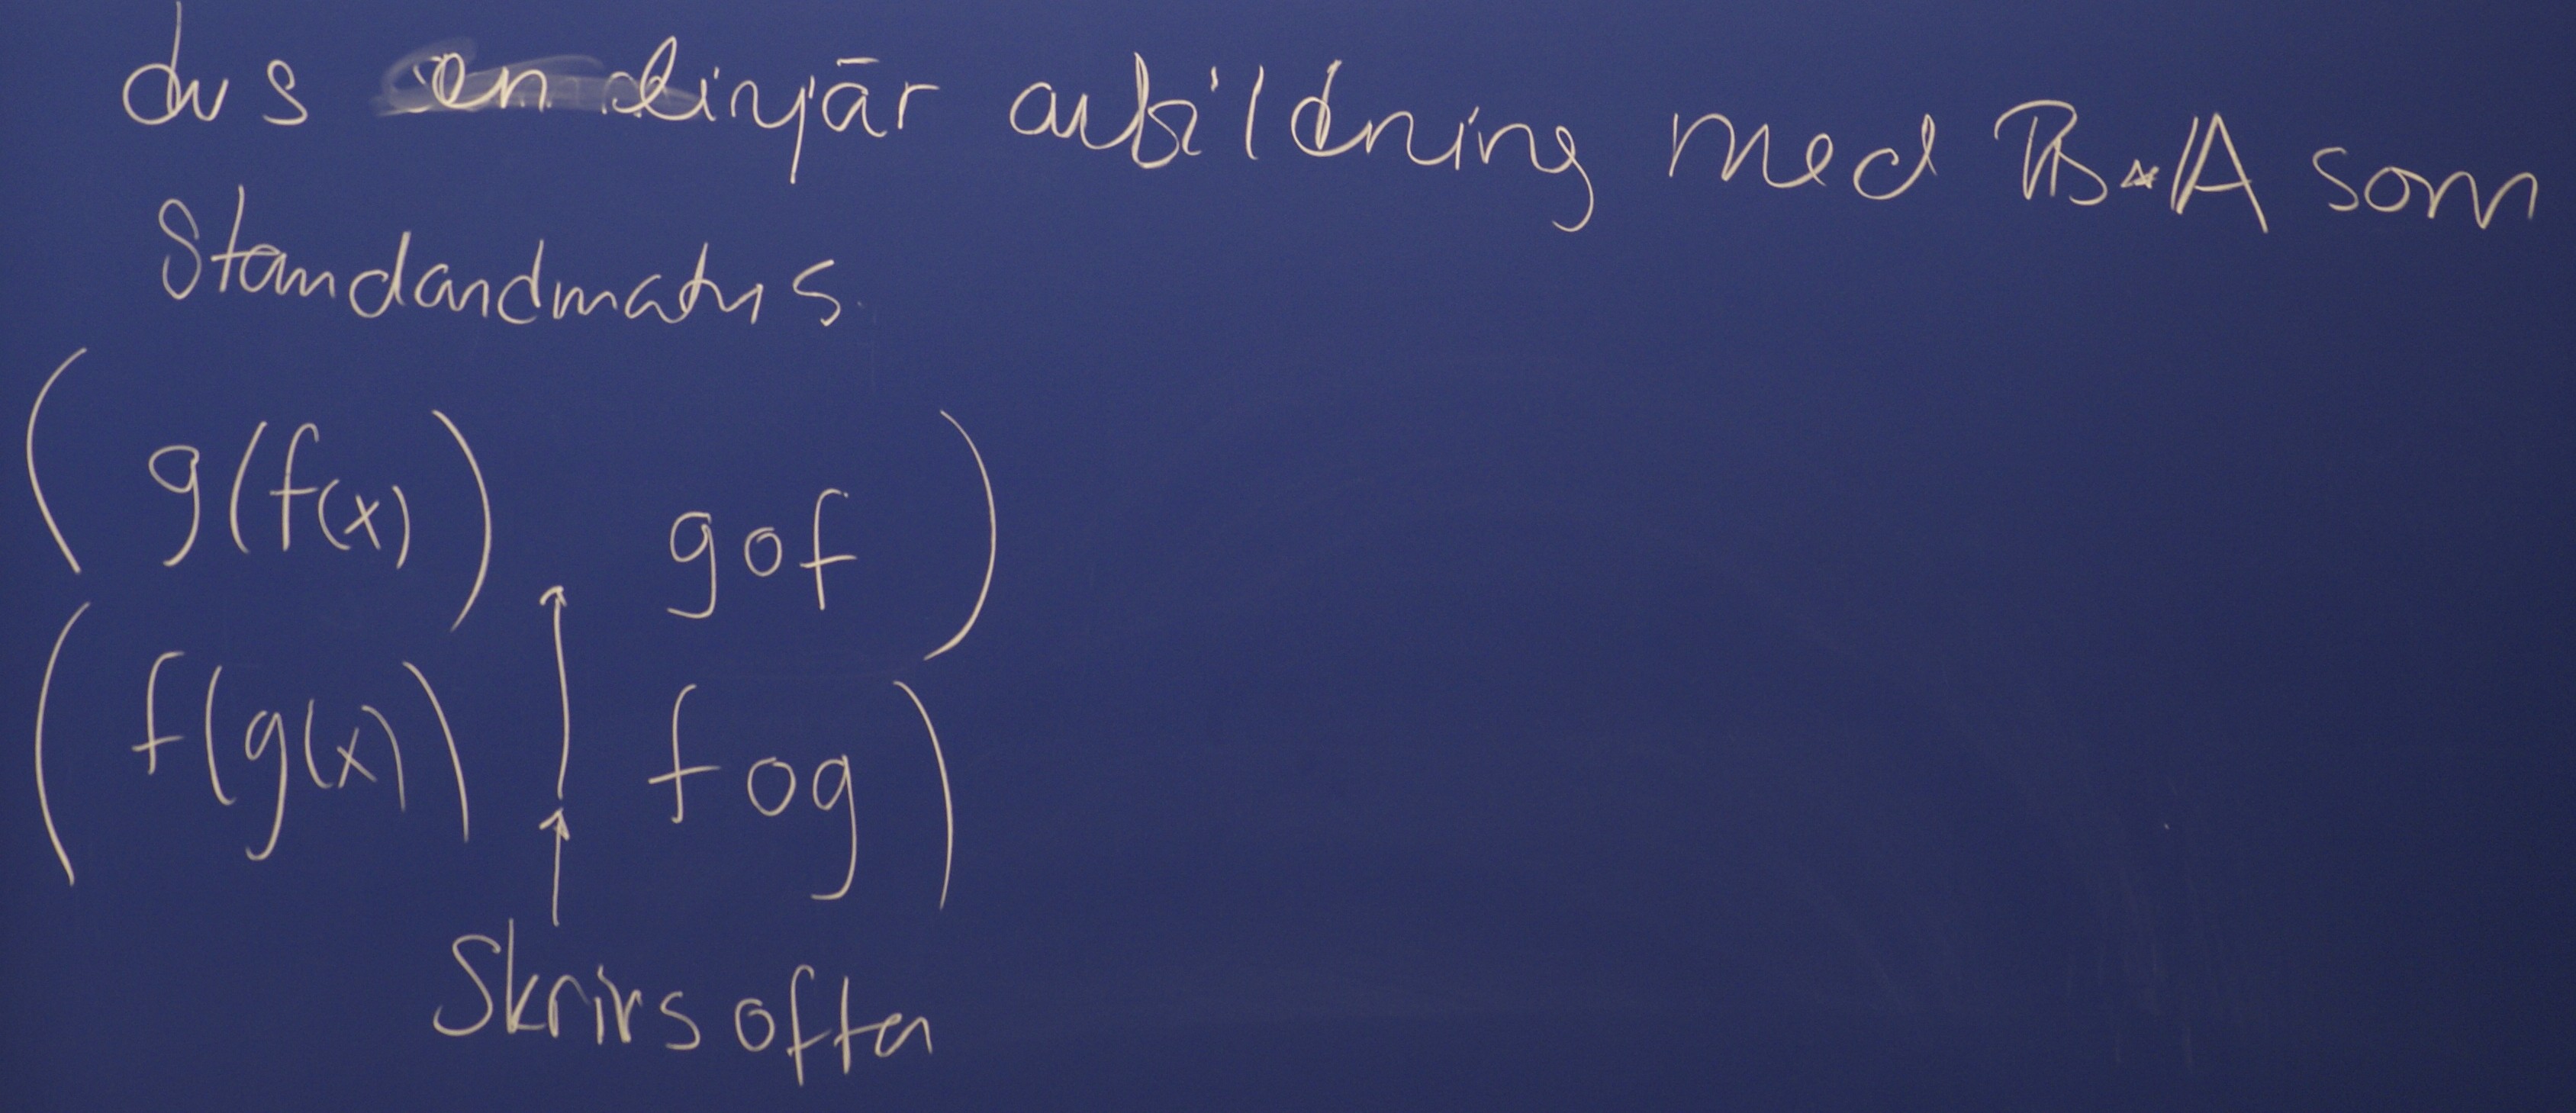 dvs en linjär avbildning med B·A som
Standardmatris.
( g(f(x)) ↑ g∘f )
( f(g(x)) ↑ f∘g )
Skrivs ofta